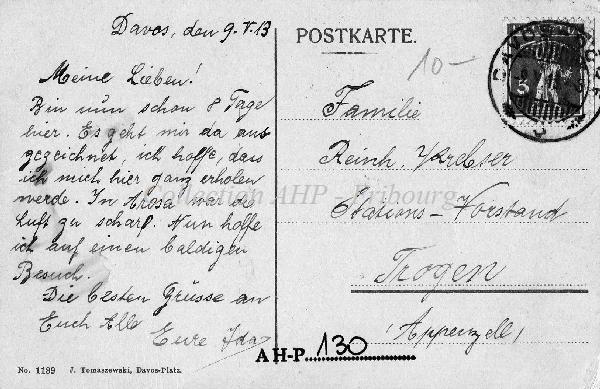 Davos, den 9.V.13
Meine Lieben!
Bin nun schon 8 Tage
hier. Es geht mir da aus
gezeichnet, ich hoffe, dass
ich mich hier ganz erholen
werde. In Arosa war die
Luft zu scharf. Nun hoffe
ich auf einen baldigen
Besuch.
Die besten Grüsse an
Euch Alle
Eure Ida
No. 1189 J. Tomaszewski, Davos-Platz.
POSTKARTE.
10-
5
Familie
Reinh. Krebser
Stations-Vorstand
Trogen
(Appenzell)
AH-P 130
Collection AHP - Fribourg